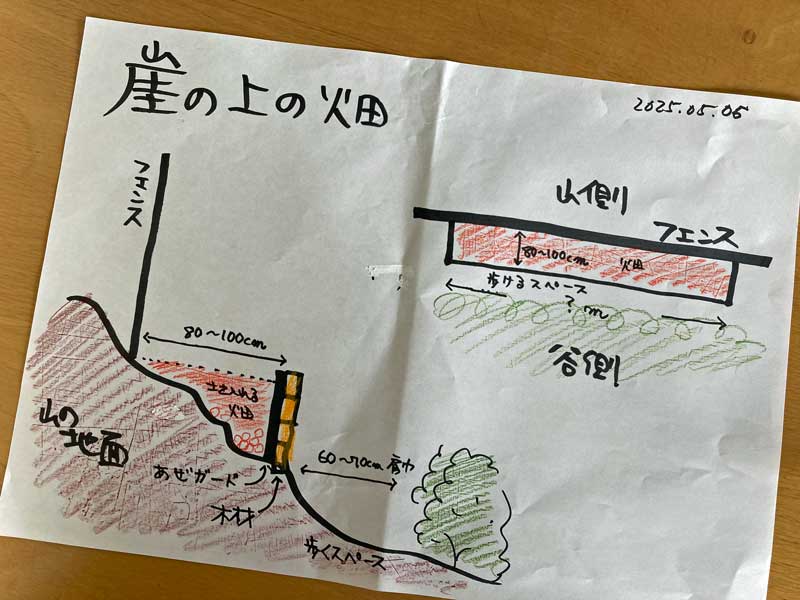 崖の上の畑
2025.05.06
フェンス
80〜100cm
土を入れる
畑
山の
地面
あぜガード
木材
60〜70cm
歩くスペース
山側
フェンス
80〜100cm 畑
歩けるスペース
? m
谷側